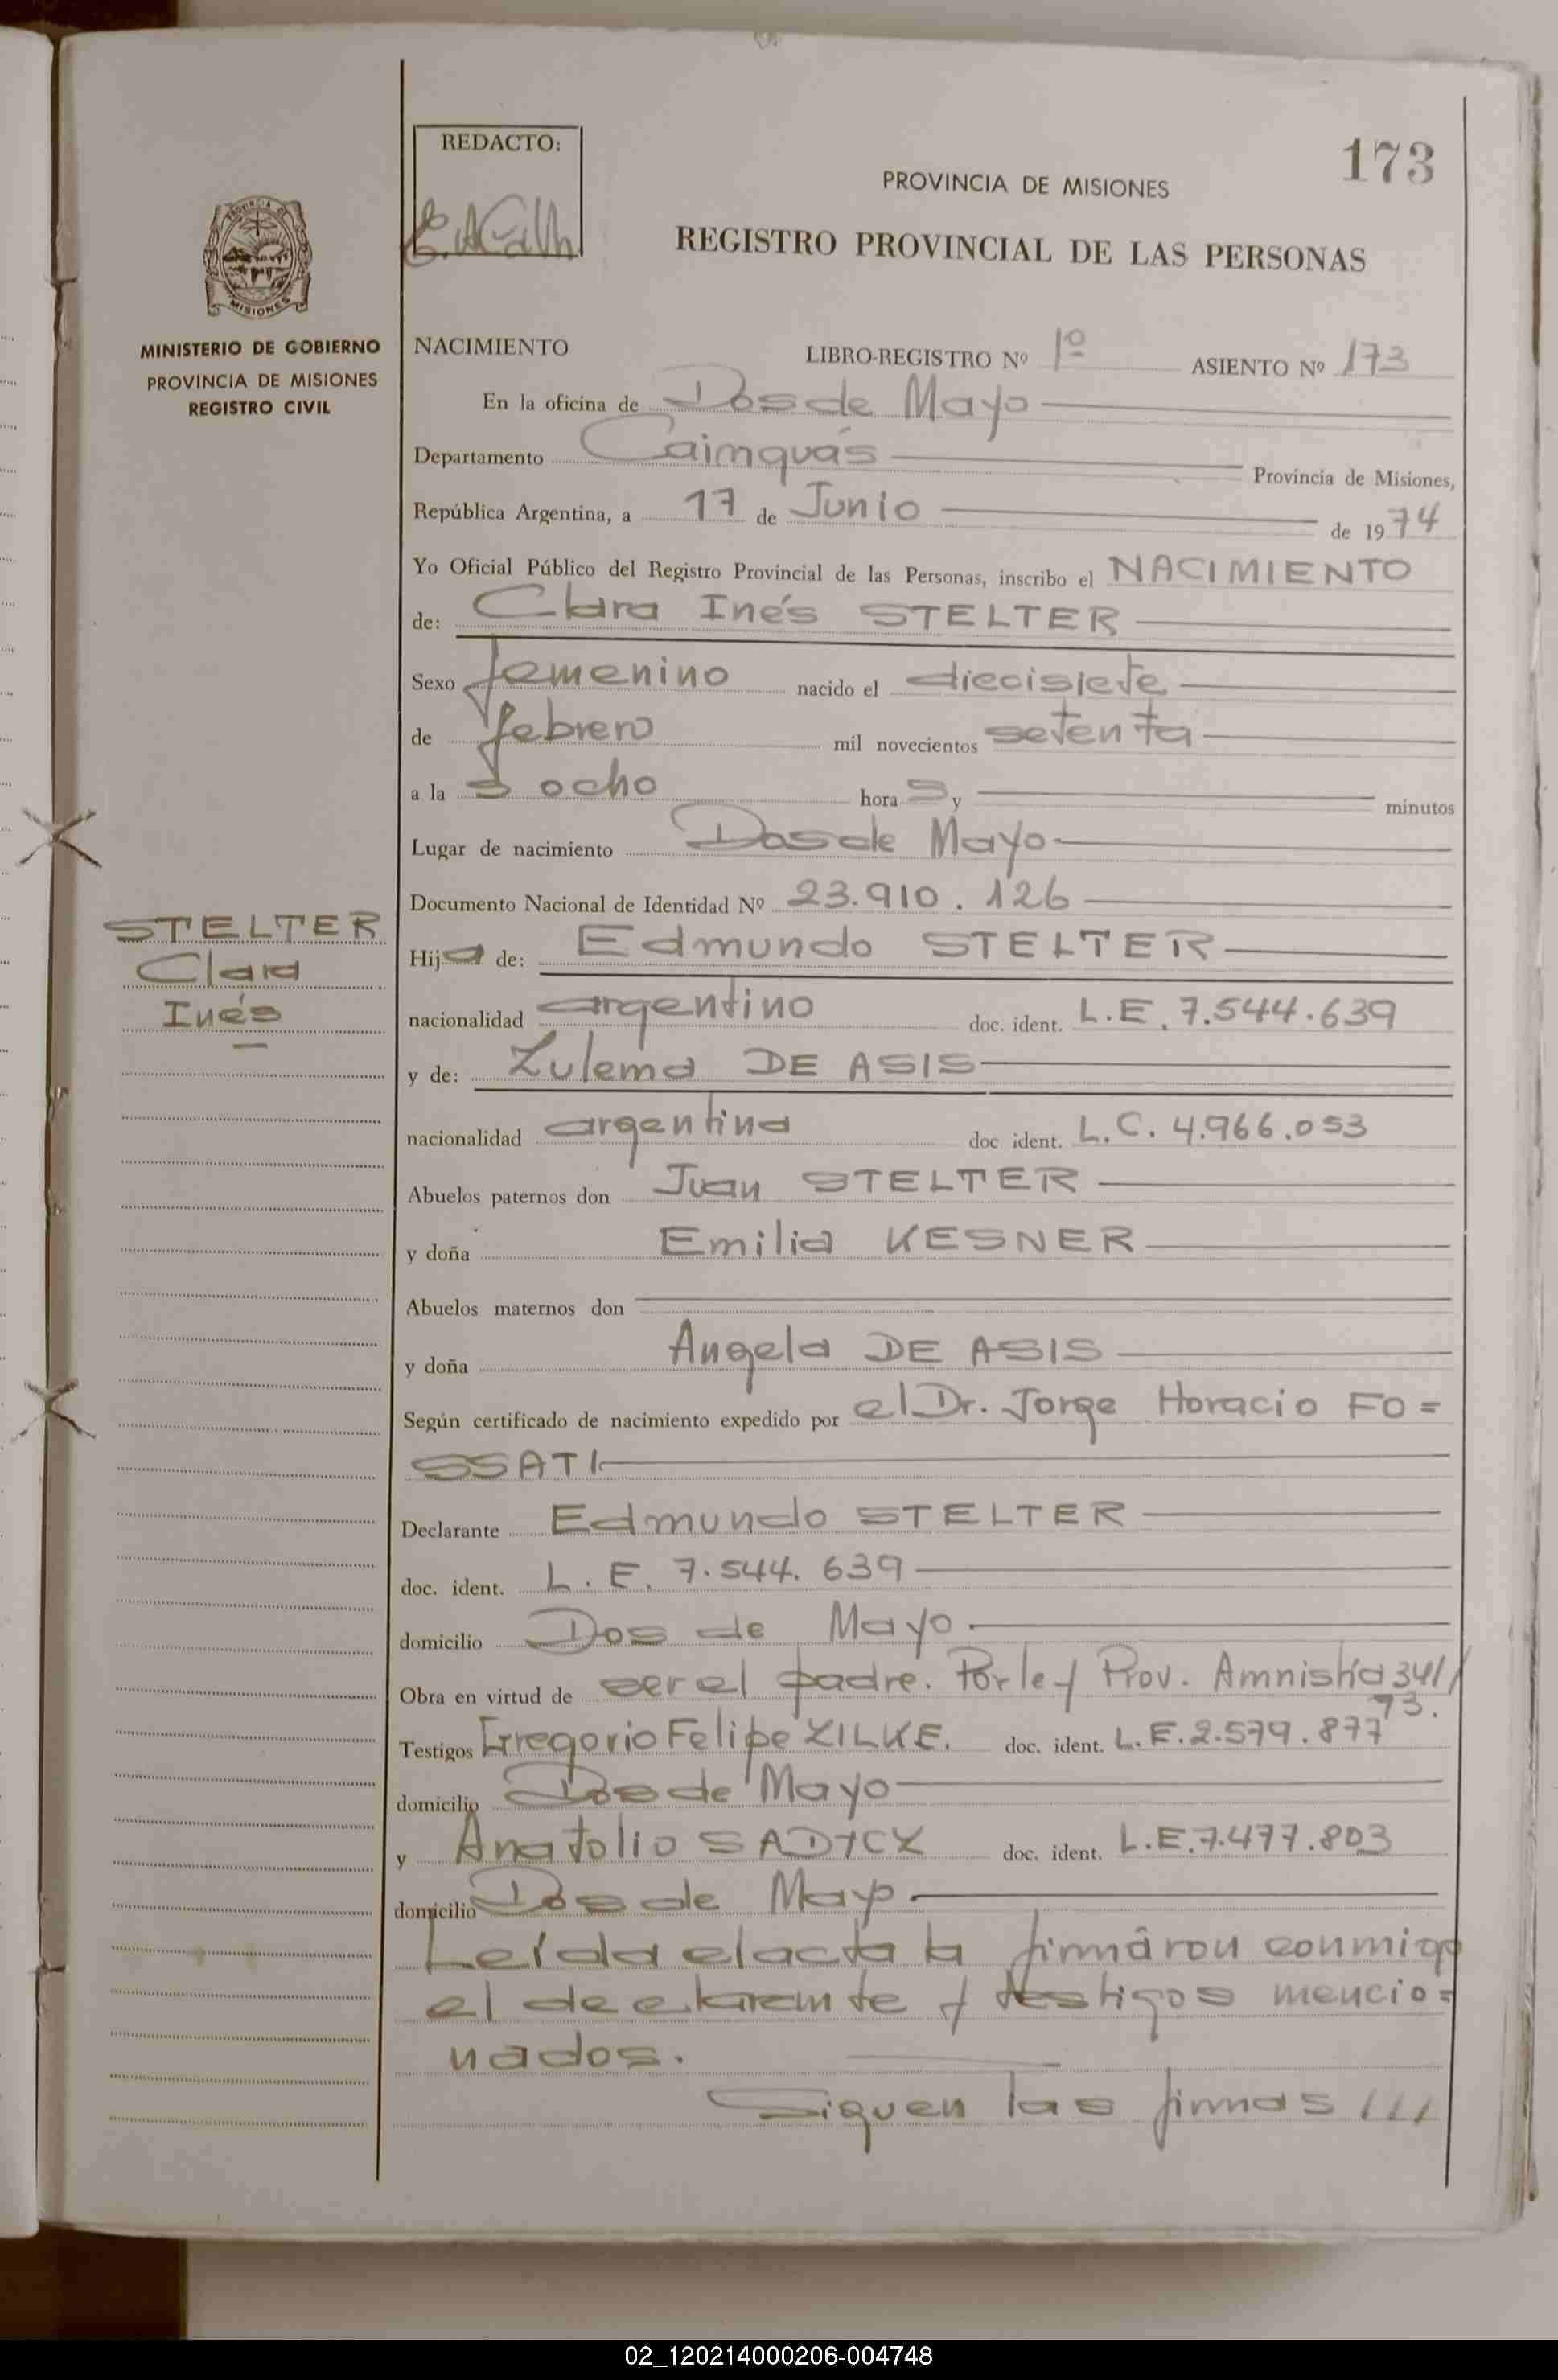 173
REDACTO:
PROVINCIA DE MISIONES
REGISTRO PROVINCIAL DE LAS PERSONAS
MISIONES
MINISTERIO DE GOBIERNO
PROVINCIA DE MISIONES
REGISTRO CIVIL
NACIMIENTO LIBRO-REGISTRO Nº 1º ASIENTO Nº 173
En la oficina de Dos de Mayo
Departamento Caimguás Provincia de Misiones,
República Argentina, a 17 de Junio de 1974
Yo Oficial Público del Registro Provincial de las Personas, inscribo el NACIMIENTO
de: Clara Inés STELTER
Sexo femenino nacido el diecisiete
de febrero mil novecientos setenta
a la s ocho hora s y minutos
Lugar de nacimiento Dos de Mayo
Documento Nacional de Identidad Nº 23.910.126
STELTER
Clara
Inés
Hija de: Edmundo STELTER
nacionalidad argentino doc. ident. L.E. 7.544.639
y de: Zulema DE ASIS
nacionalidad argentina doc ident. L.C. 4.966.053
Abuelos paternos don Juan STELTER
y doña Emilia KESNER
Abuelos maternos don
y doña Angela DE ASIS
Según certificado de nacimiento expedido por el Dr. Jorge Horacio FO=
SSATI
Declarante Edmundo STELTER
doc. ident. L.E. 7.544.639
domicilio Dos de Mayo
Obra en virtud de ser el padre. Por ley Prov. Amnistía 341/
73.
Testigos Gregorio Felipe ZILKE. doc. ident. L.E. 2.579.877
domicilio Dos de Mayo
y Anatolio SADYCZ doc. ident. L.E. 7.477.803
domicilio Dos de Mayo
Leída el acta la firmáron conmigo
el declarante y testigos mencio=
nados.
Siguen las firmas ///
02_120214000206-004748